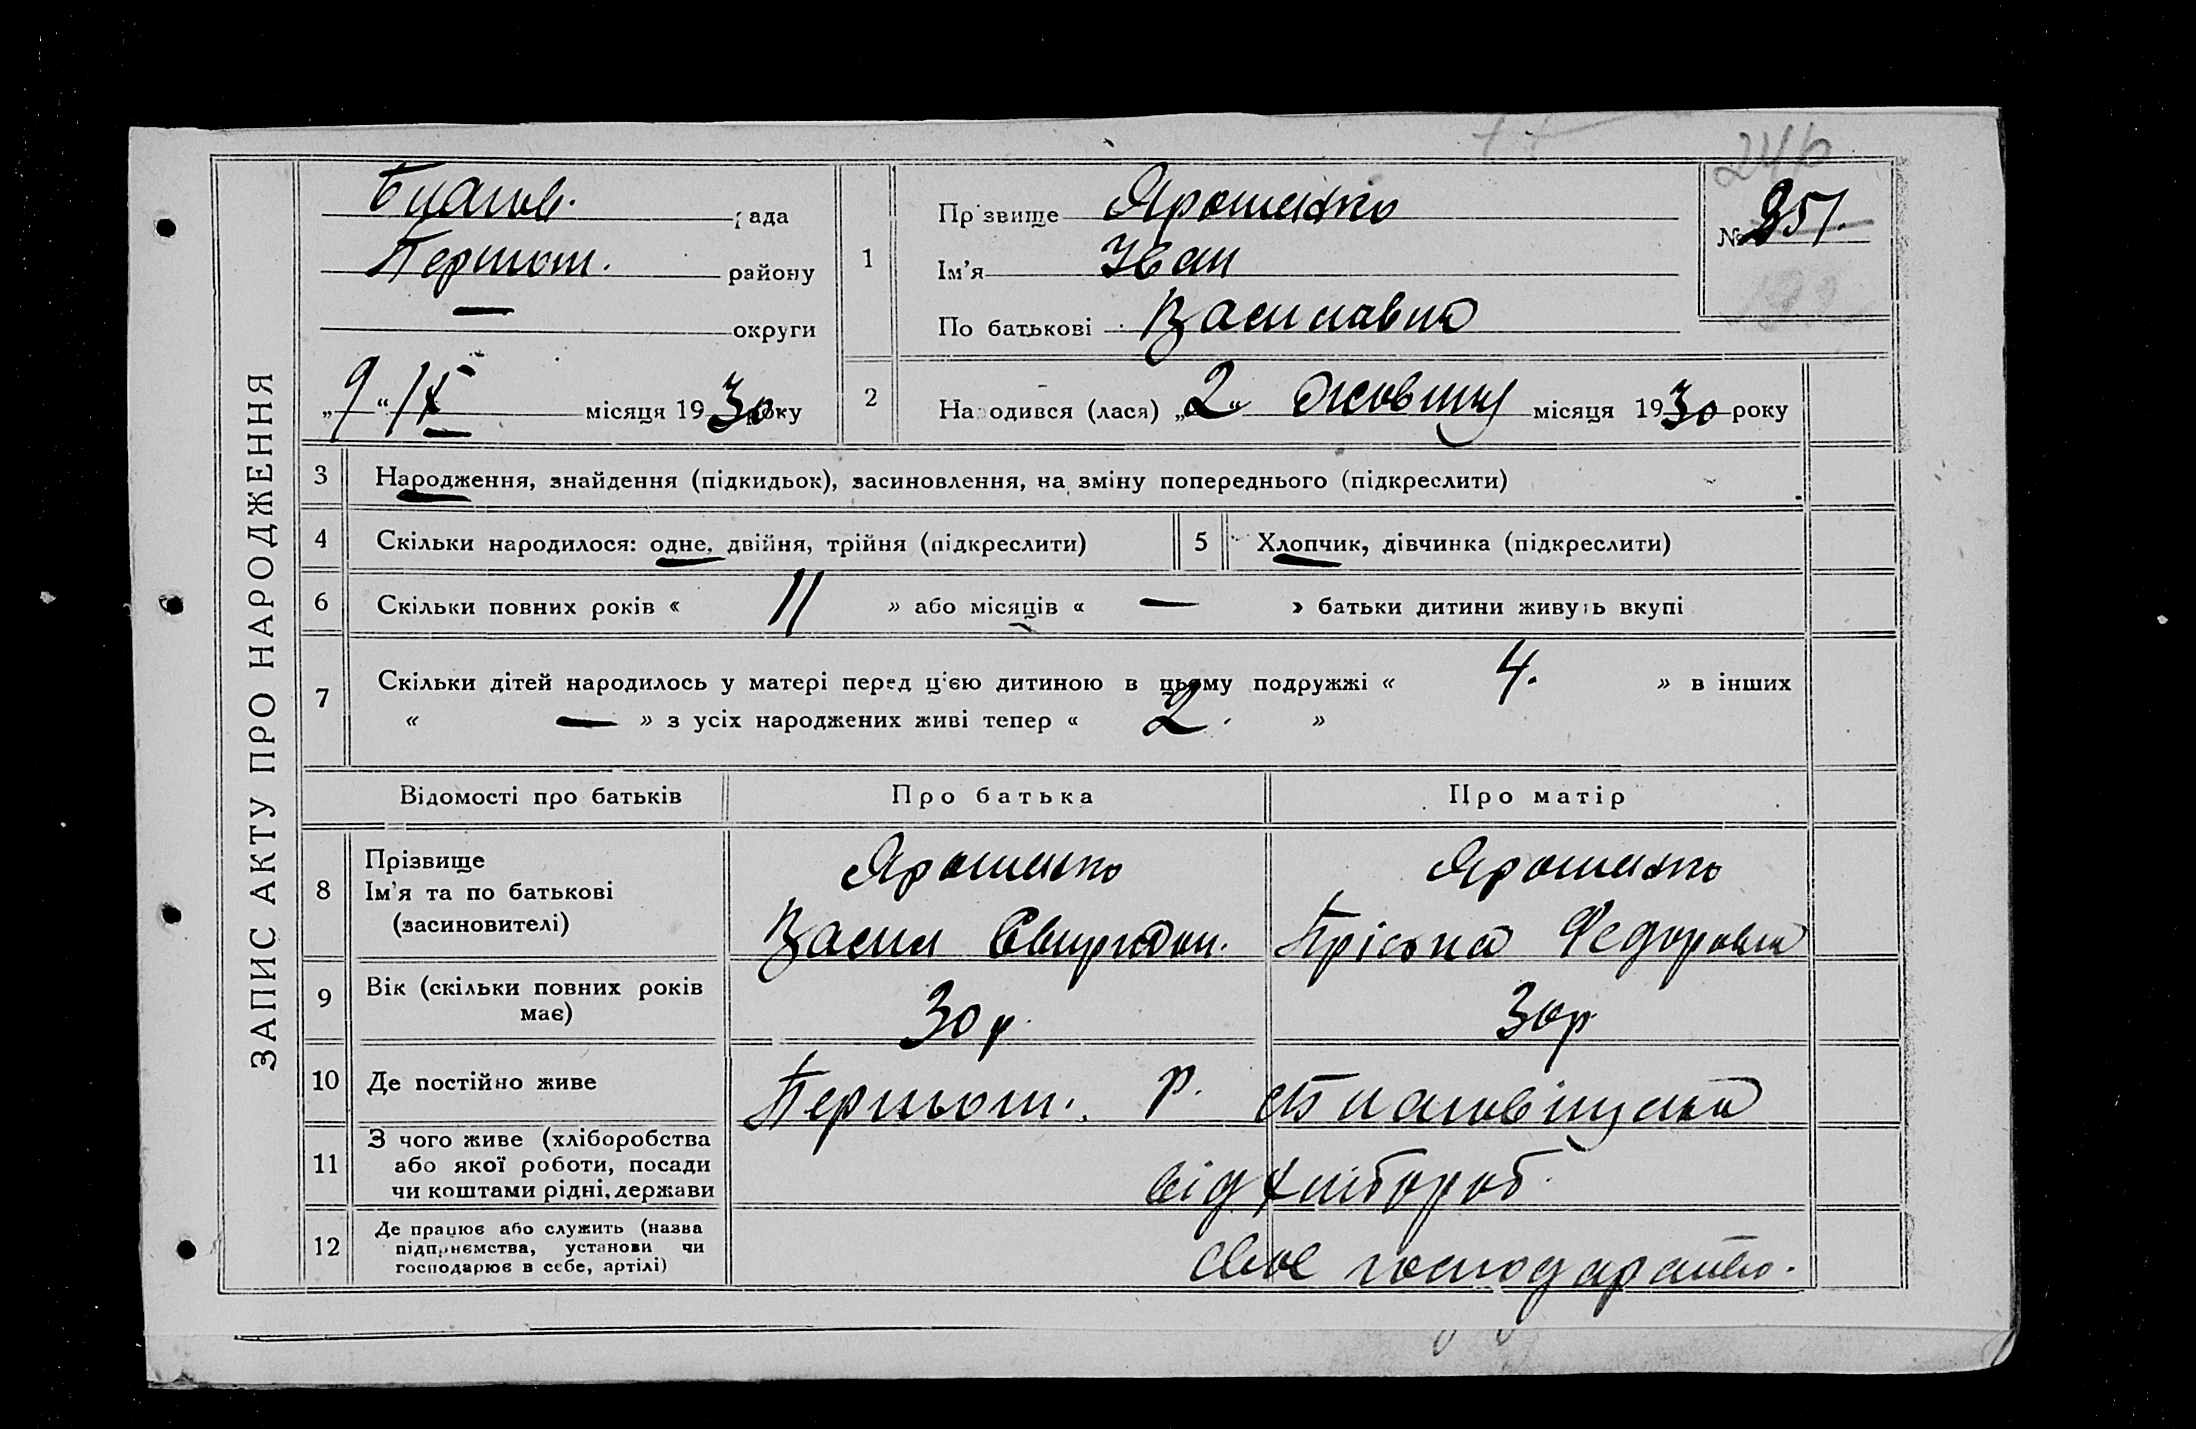 ЗАПИС АКТУ ПРО НАРОДЖЕННЯ
рада
Першот. району
округи
„9“ місяця 1930 року
1
Прізвище Ярошенко
Ім'я Іван
По батькові
246
№ 351.
2
Народився (лася) „2“ жовтня місяця 1930 року
3 Народження, знайдення (підкидьок), засиновлення, на зміну попереднього (підкреслити)
4 Скільки народилося: одне, двійня, трійня (підкреслити)
5 Хлопчик, дівчинка (підкреслити)
6 Скільки повних років « 11 » або місяців « — » батьки дитини живуть вкупі
7 Скільки дітей народилось у матері перед цією дитиною в цьому подружжі « 4. » в інших
« — » з усіх народжених живі тепер « 2. »
Відомості про батьків Про батька Про матір
8 Прізвище
Ім'я та по батькові
(засиновителі)
Ярошенко
Васил Свиридон.
Ярошенко
Пріська Федоровна
9 Вік (скільки повних років
має)
30 р. 30 р
10 Де постійно живе Першот. р.
11 З чого живе (хліборобства
або якої роботи, посади
чи коштами рідні, держави
від хлібороб.
12 Де працює або служить (назва
підприємства, установи чи
господарює в себе, артілі)
своє господарство.